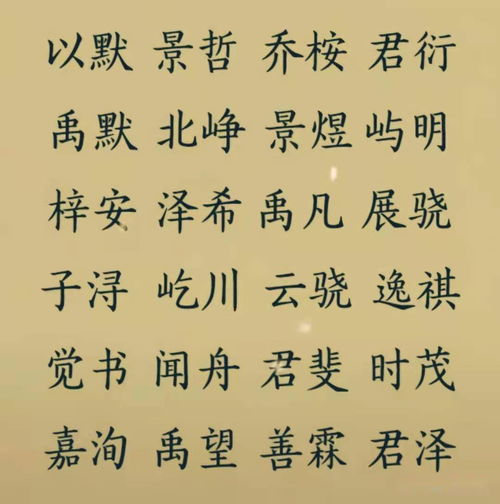 以默 景哲 乔桉 君衍
禹默 北峥 景煜 屿明
梓安 泽希 禹凡 展骁
子浔 屹川 云骁 逸祺
觉书 闻舟 君斐 时茂
嘉洵 禹望 善霖 君泽